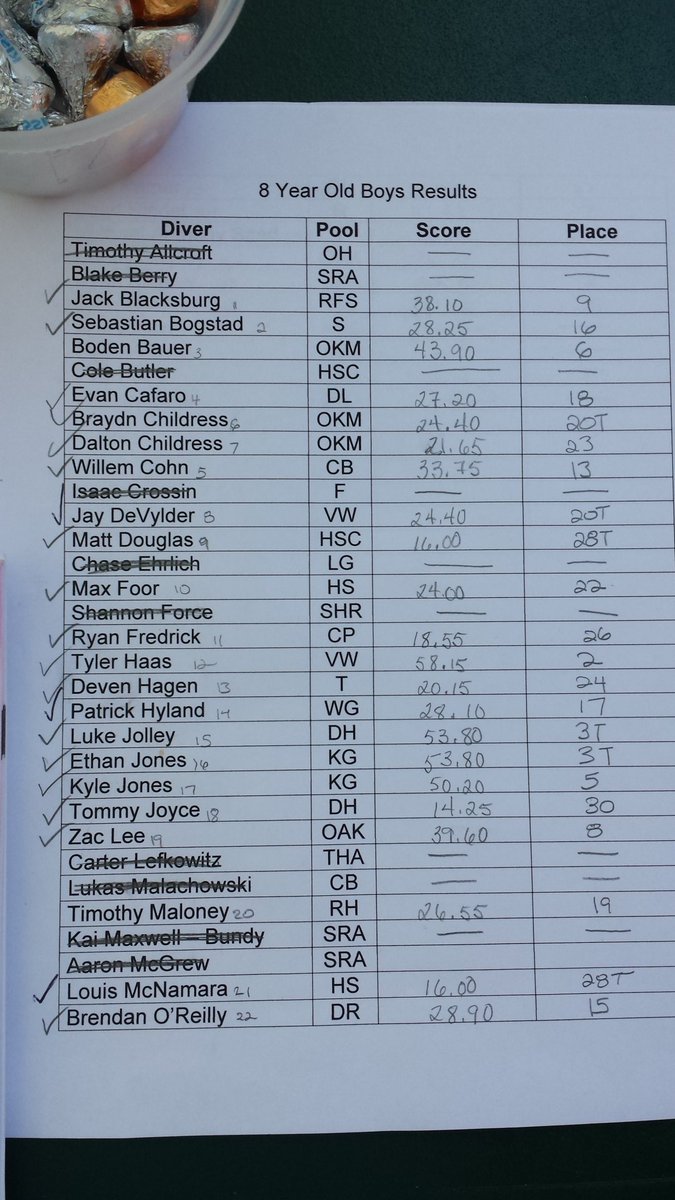 8 Year Old Boys Results
Diver Pool Score Place
Timothy Allcroft OH — —
Blake Berry SRA — —
Jack Blacksburg 1 RFS 38.10 9
Sebastian Bogstad 2 S 28.25 16
Boden Bauer 3 OKM 43.90 6
Cole Butler HSC — —
Evan Cafaro 4 DL 27.20 18
Braydn Childress 6 OKM 24.40 20T
Dalton Childress 7 OKM 21.65 23
Willem Cohn 5 CB 33.75 13
Isaac Crossin F — —
Jay DeVylder 8 VW 24.40 20T
Matt Douglas 9 HSC 16.00 28T
Chase Ehrlich LG — —
Max Foor 10 HS 24.00 22
Shannon Force SHR — —
Ryan Fredrick 11 CP 18.55 26
Tyler Haas 12 VW 58.15 2
Deven Hagen 13 T 20.15 24
Patrick Hyland 14 WG 28.10 17
Luke Jolley 15 DH 53.80 3T
Ethan Jones 16 KG 53.80 3T
Kyle Jones 17 KG 50.20 5
Tommy Joyce 18 DH 14.25 30
Zac Lee 19 OAK 39.60 8
Carter Lefkowitz THA — —
Lukas Malachowski CB — —
Timothy Maloney 20 RH 26.55 19
Kai Maxwell – Bundy SRA — —
Aaron McGrew SRA
Louis McNamara 21 HS 16.00 28T
Brendan O'Reilly 22 DR 28.90 15